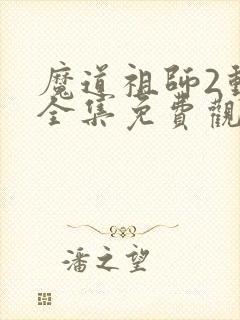 魔道祖師2動
全集免費觀
潘之望